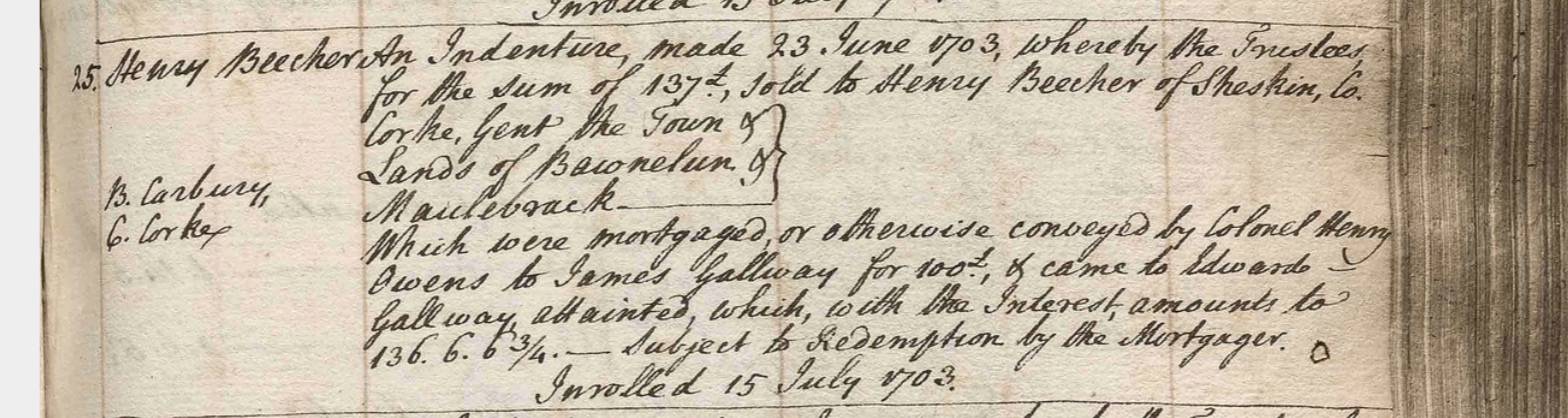 Inrolled 15 July
25. Henry Beecher An Indenture, made 23 June 1703, whereby the Trustees,
for the sum of 137£., sold to Henry Beecher of Sheskin, Co.
Corke, Gent the Town &
Lands of Bawnelun &
B. Carbury,
Maulebrack
C. Corke
Which were mortgaged, or otherwise conveyed by Colonel Henry
Owens to James Gallway for 100£., & came to Edward
Gallway, attainted, which, with the Interest, amounts to
136. 6. 6 3/4. — Subject to Redemption by the Mortgager.
Inrolled 15 July 1703.